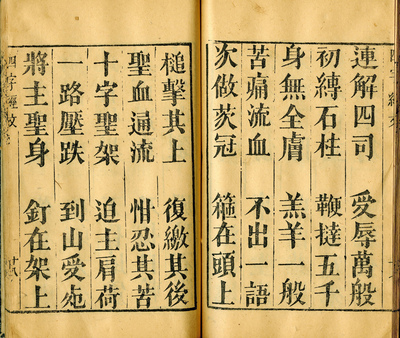 連解四司 愛辱萬般
初縛石柱 鞭撻五千
身無全膚 羔羊一般
苦痛流血 不出一語
次做茨冠 箍在頭上
槌擊其上 復繳其後
聖血遍流 忍其苦
十字聖架 迫主肩荷
一路壓跌 到山愛死
將主聖身 釘在架上
四字經文 廿八